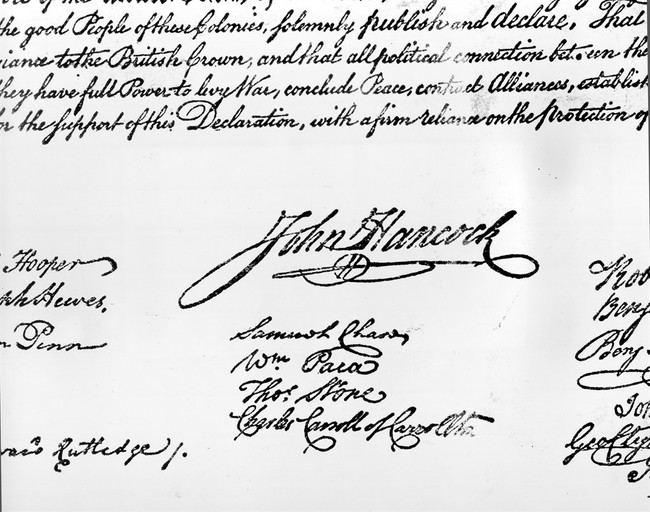 the good People of these Colonies, solemnly publish and declare, That
to the British Crown, and that all political connection between the
they have full Power to levy War, conclude Peace, contract Alliances, establish
the support of this Declaration, with a firm reliance on the protection of
John Hancock
Hooper
Hewes,
Penn
Rutledge /.
Samuel Chase
Wm. Paca
Thos. Stone
Charles Carroll of Carrollton
Rob
Benj
Benj
Joh
Geo Cly